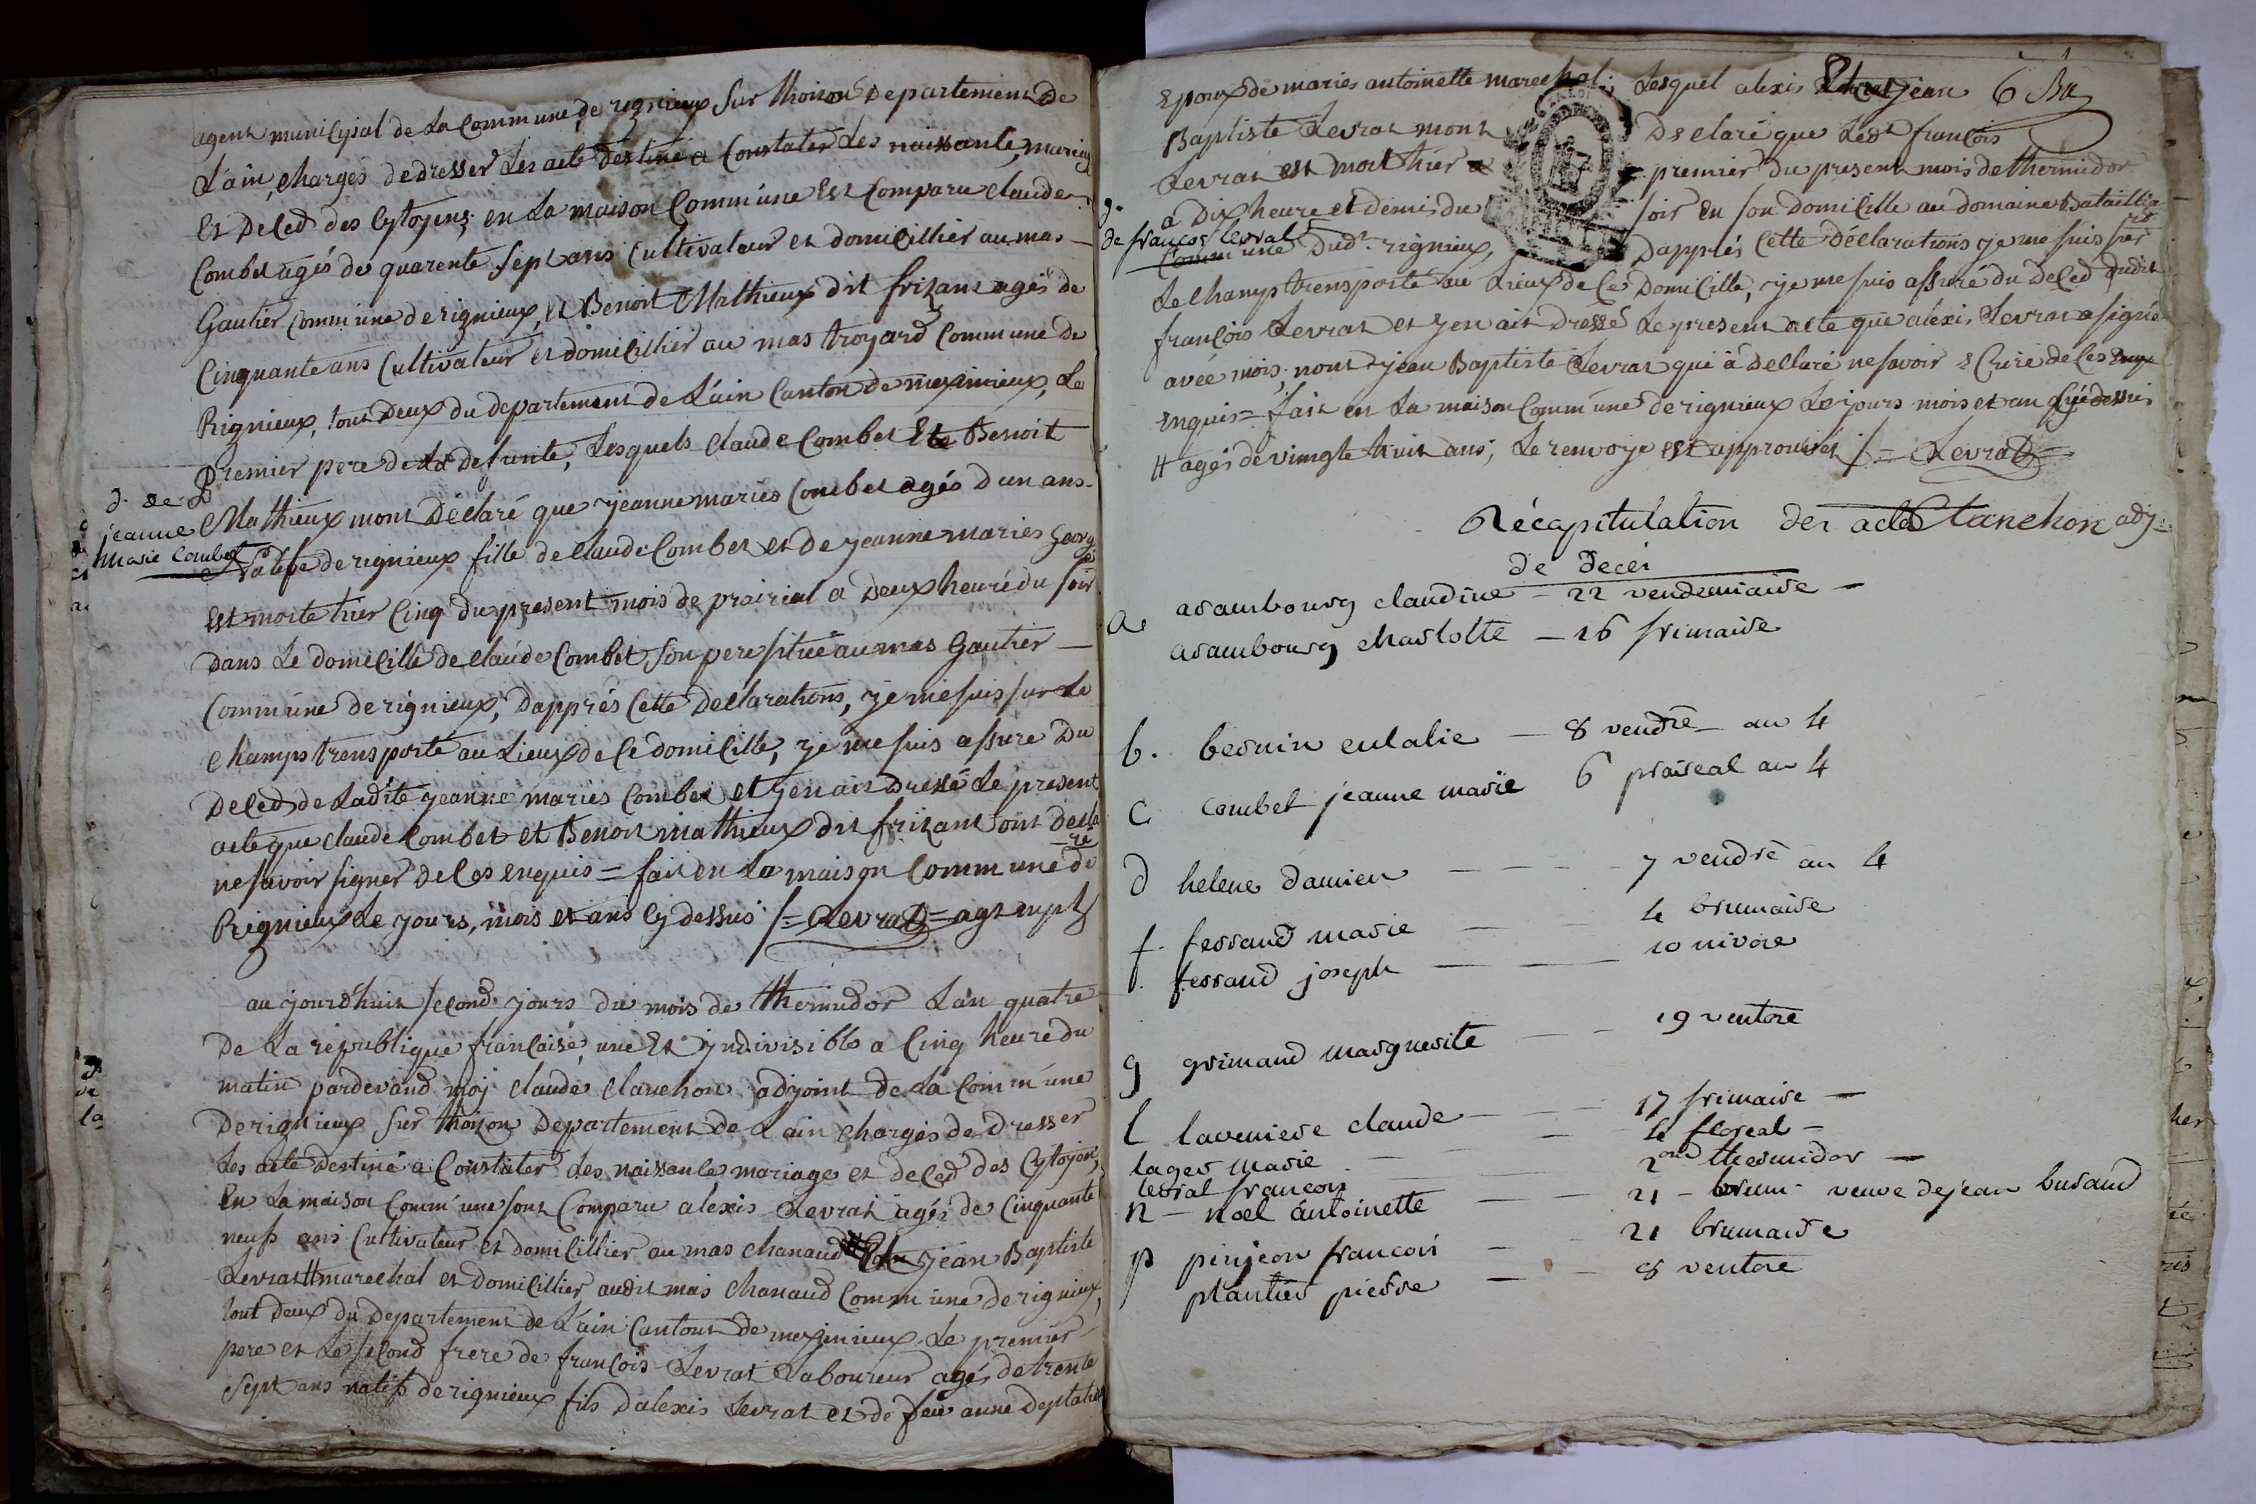 agent municipal de La Commune de rignieux sur thoizon Departement de
L'ain, chargés de dresser Les acte destiné a Constater Les naissance, mariag
Et Deced des Cytoyens; en La maison Commune Est Comparu claude
Combet agés de quarente sept ans Cultivateur et domicillier au mas
Gautier commune de rignieux, et Benoit Mathieux dit frizant agés de
Cinquante ans Cultivateur et domicillier au mas troyard Commune de
Rignieux, tout Deux du departement de L'ain Canton de meximieux, Le
Premier pere de La defunte, Lesquels claude Combet Et Benoit
d. de
jeanne
marie Combet
Mathieux mont Déclaré que jeanne maries Combet agés d'un ans
native de rignieux fille de claude Combet et De jeanne maries George
Est morte hier Cinq du present mois de prairial a Deux heure du soir
Dans Le domicille de claude Combet Son pere situé au mas Gautier
Commune de rignieux, D'apprés Cette Declarations, je me suis sur Le
champs transporté au Lieux de Ce domicille, je me suis assure Du
Deced de Ladite jeanne maries Combet et j'en ais Dressé Le present
acte que claude Combet et Benoit mathieux dit frizant ont decla
ré
ne savoir signer de Ces enquis = fait en La maison Commune de
Rignieux Le jours, mois et ans cy dessus /= Levrat = agt mpl
aujourd'huit second jours du mois de thermidor L'an quatre
De La république française, une Et yndivisible a Cinq heure du
matin pardevand moj claude clanchon adjoint de La Commune
De rignieux sur thoizon Departement de L'ain chargés de Dresser
Les acte Destiné a Constater Les naissance mariage et deced des Cytoyens,
En La maison Commune sont Comparu alexis Levrat agés de Cinquante
neuf ans Cultivateur et domicillier au mas chanaud jean Baptiste
Levrat # marechal et domicillier audit mas chanaud Commune de rignieux,
tout Deux du Departement de L'ain Cantont de meximieux Le premier
pere et Le second frere de françois Levrat Laboureur agés de trente
sept ans natif de rignieux fils d'alexis Levrat et de feu anne
Epoux de maries antoinette marechal; Lesquel alexis jean 6
Baptiste Levrat mont Declaré que Ledt françois
Levrat est mort hier premier du present mois de thermidor
a Dix heure et demis du soir En son Domicille au domaine
d.
de françois levrat
Commune Dudt. rignieux, D'apprés Cette déclarations je me suis sur
Le champs transporté au Lieux de Ce Domicille, je me suis assuré du Deced dudit
françois Levrat et j'en ait Dressé Le present acte que aléxis Levrat a signé
avée mois; nont jean Baptiste Levrat qui a Dellaré ne savoir ecrire de Ces
enquis = fait en La maison Commune de rignieux Le jours mois et an cy dessus
# agés de vingte huit ans; Le renvoye est approuvés /= Levrat
Récapitulation des acte Clanchon adj
de décés
a. arambourg claudine - 22 vendemiaire -
arambourg charlotte - 16 frimaire
b. bernin eulalie - 8 vendre - an 4
c combet jeanne marie 6 praireal an 4
d helene damien - 7 vendre an 4
f. ferrand marie - 4 brumaire
f. ferrand joseph - 10 nivose
g grimaud marguerite - 19 ventose
l laveniere claude - 17 frimaire -
lager marie - 4 floreal -
levrat francois - 2ond thermidor -
n - noel antoinette - 21 - brum - veuve de jean buraud
p pinjeon francois - 21 brumaire
plantier pierre - 8 ventose